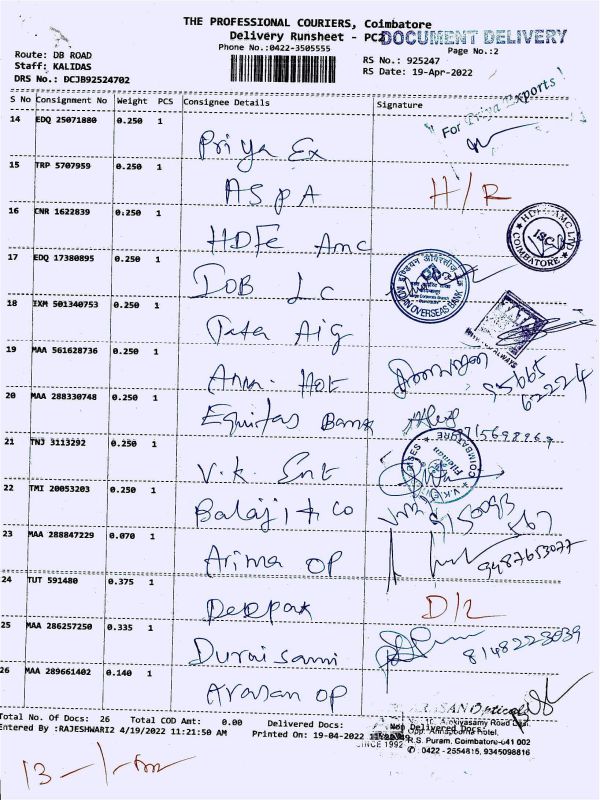 THE PROFESSIONAL COURIERS, Coimbatore
Delivery Runsheet - PC2
DOCUMENT DELIVERY
Phone No.:0422-3505555
Page No.:2
Route: DB ROAD
RS No.: 925247
Staff: KALIDAS
RS Date: 19-Apr-2022
DRS No.: DCJB92524702
S No Consignment No Weight PCS Consignee Details Signature
For Priya Exports!
14 EDQ 25071880 0.250 1
Priya Ex
15 TRP 5707959 0.250 1
ASPA H/R
16 CNR 1622839 0.250 1
HDFC Amc
HDFC AMC LTD * COIMBATORE *
17 EDQ 17380895 0.250 1
IOB LC
इंडियन ओवरसीज़ बैंक
INDIAN OVERSEAS BANK
18 IXM 501340753 0.250 1
Tata Aig
WITH YOU ALWAYS
19 MAA 561628736 0.250 1
Anna. Hot 95665
62224
20 MAA 288330748 0.250 1
Equitas Bank
21 TNJ 3113292 0.250 1
V.K. Ent
COIMBATORE
22 TMI 20053203 0.250 1
Balaji & Co 9150093
567
23 MAA 288847229 0.070 1
Arima OP 9487653077
24 TUT 591480 0.375 1
Deepak D/2
25 MAA 286257250 0.335 1
Duraisami 8148223039
26 MAA 289661402 0.140 1
Arasan OP
Total No. Of Docs: 26 Total COD Amt: 0.00 Delivered Docs: Non Delivered Docs:
Entered By :RAJESHWARI2 4/19/2022 11:21:50 AM Printed On: 19-04-2022
ARASAN Opticals
Opp. Annapoorna Hotel,
R.S. Puram, Coimbatore-641 002
SINCE 1992
✆ 0422 - 2554815, 9345098816
13 -